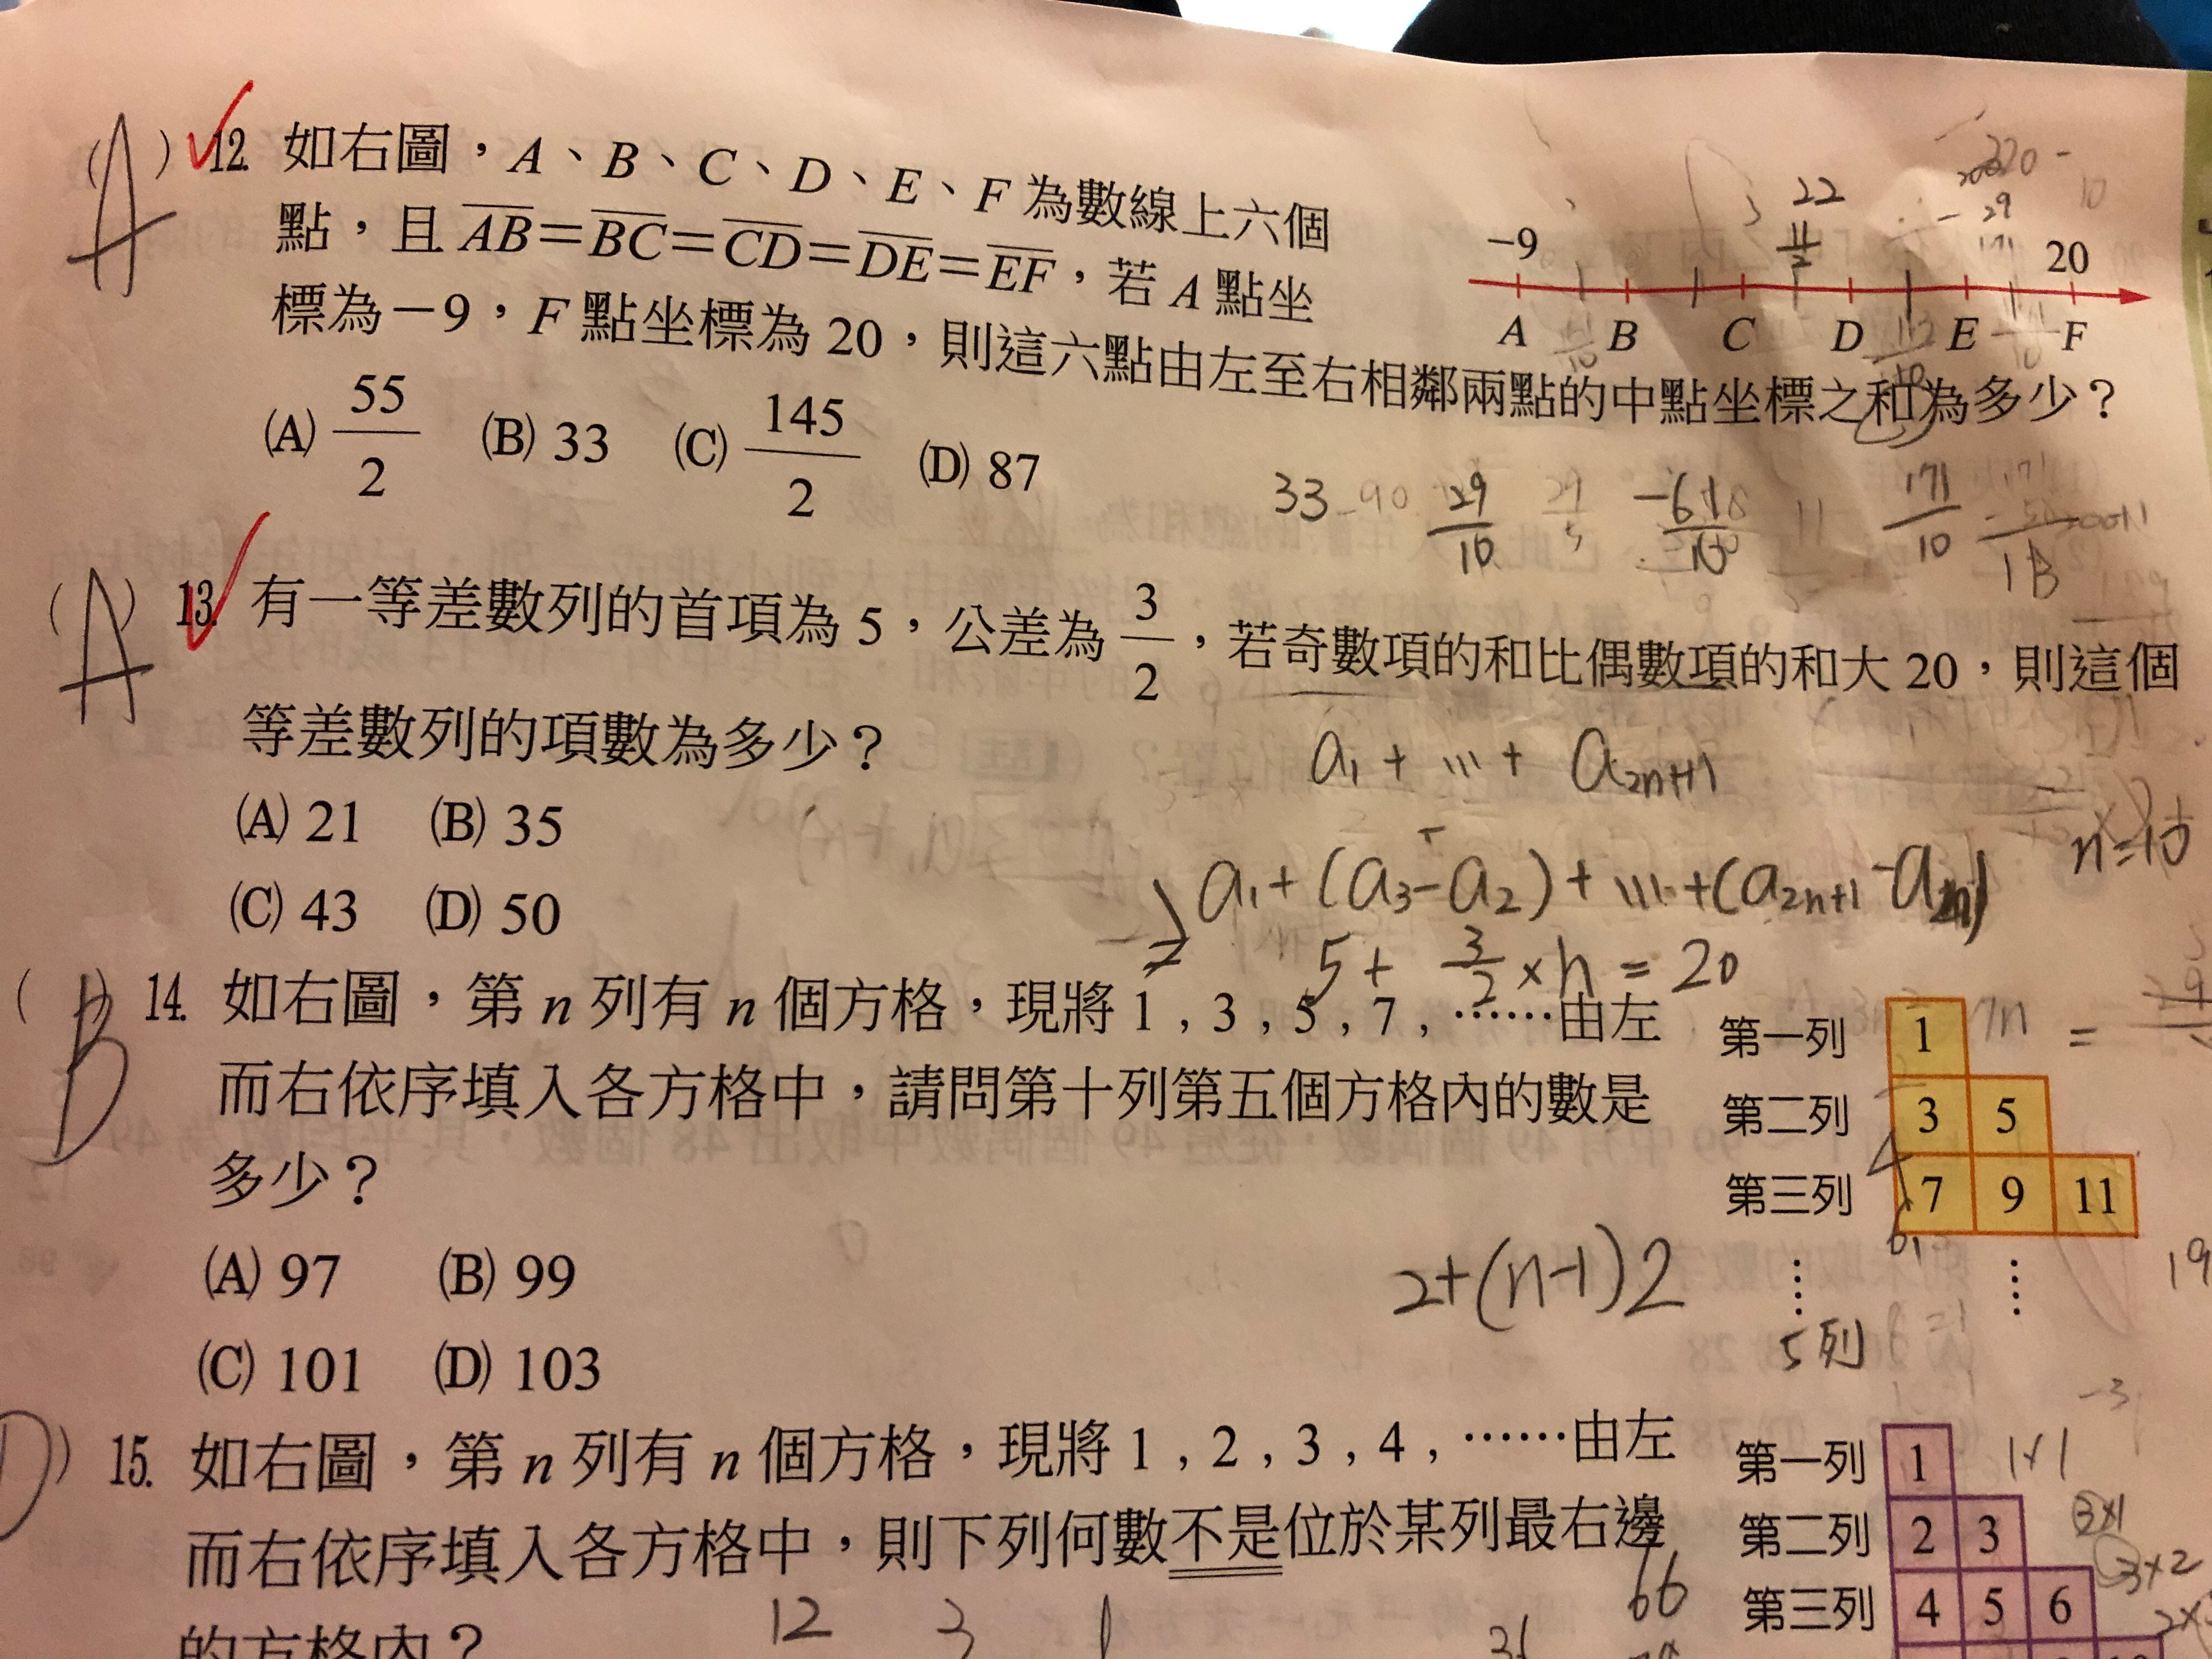 (A) 12. 如右圖，A、B、C、D、E、F 為數線上六個
點，且 AB＝BC＝CD＝DE＝EF，若 A 點坐
標為－9，F 點坐標為 20，則這六點由左至右相鄰兩點的中點坐標之和為多少？
(A) 55/2 (B) 33 (C) 145/2 (D) 87
22
11/2
−9 20
A B C D E F
33 29/10 171/10
(A) 13. 有一等差數列的首項為 5，公差為 3/2，若奇數項的和比偶數項的和大 20，則這個
等差數列的項數為多少？
(A) 21 (B) 35
(C) 43 (D) 50
a₁ + ... + a₂ₙ₊₁
a₁ + (a₃ − a₂) + ... + (a₂ₙ₊₁ − a₂ₙ)
n = 10
5 + 3/2 × n = 20
(B) 14. 如右圖，第 n 列有 n 個方格，現將 1 , 3 , 5 , 7 , ……由左
而右依序填入各方格中，請問第十列第五個方格內的數是
多少？
(A) 97 (B) 99
(C) 101 (D) 103
第一列 1
第二列 3 5
第三列 7 9 11
⋮ ⋮
2+(n−1)2
5列
19
D) 15. 如右圖，第 n 列有 n 個方格，現將 1 , 2 , 3 , 4 , ……由左
而右依序填入各方格中，則下列何數不是位於某列最右邊
的方格內？
第一列 1
第二列 2 3
第三列 4 5 6
1×1
3×1
3×2
66
12 3